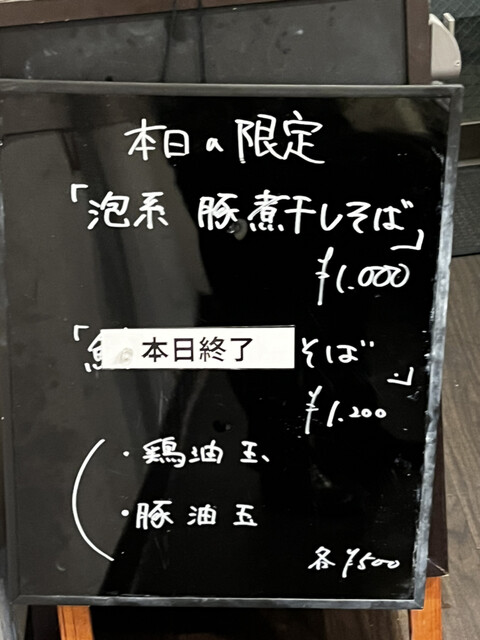 本日の限定
「泡系 豚煮干しそば」
¥1.000
「魚 本日終了 そば」
¥1.200
・鶏油玉
・豚油玉
各¥500